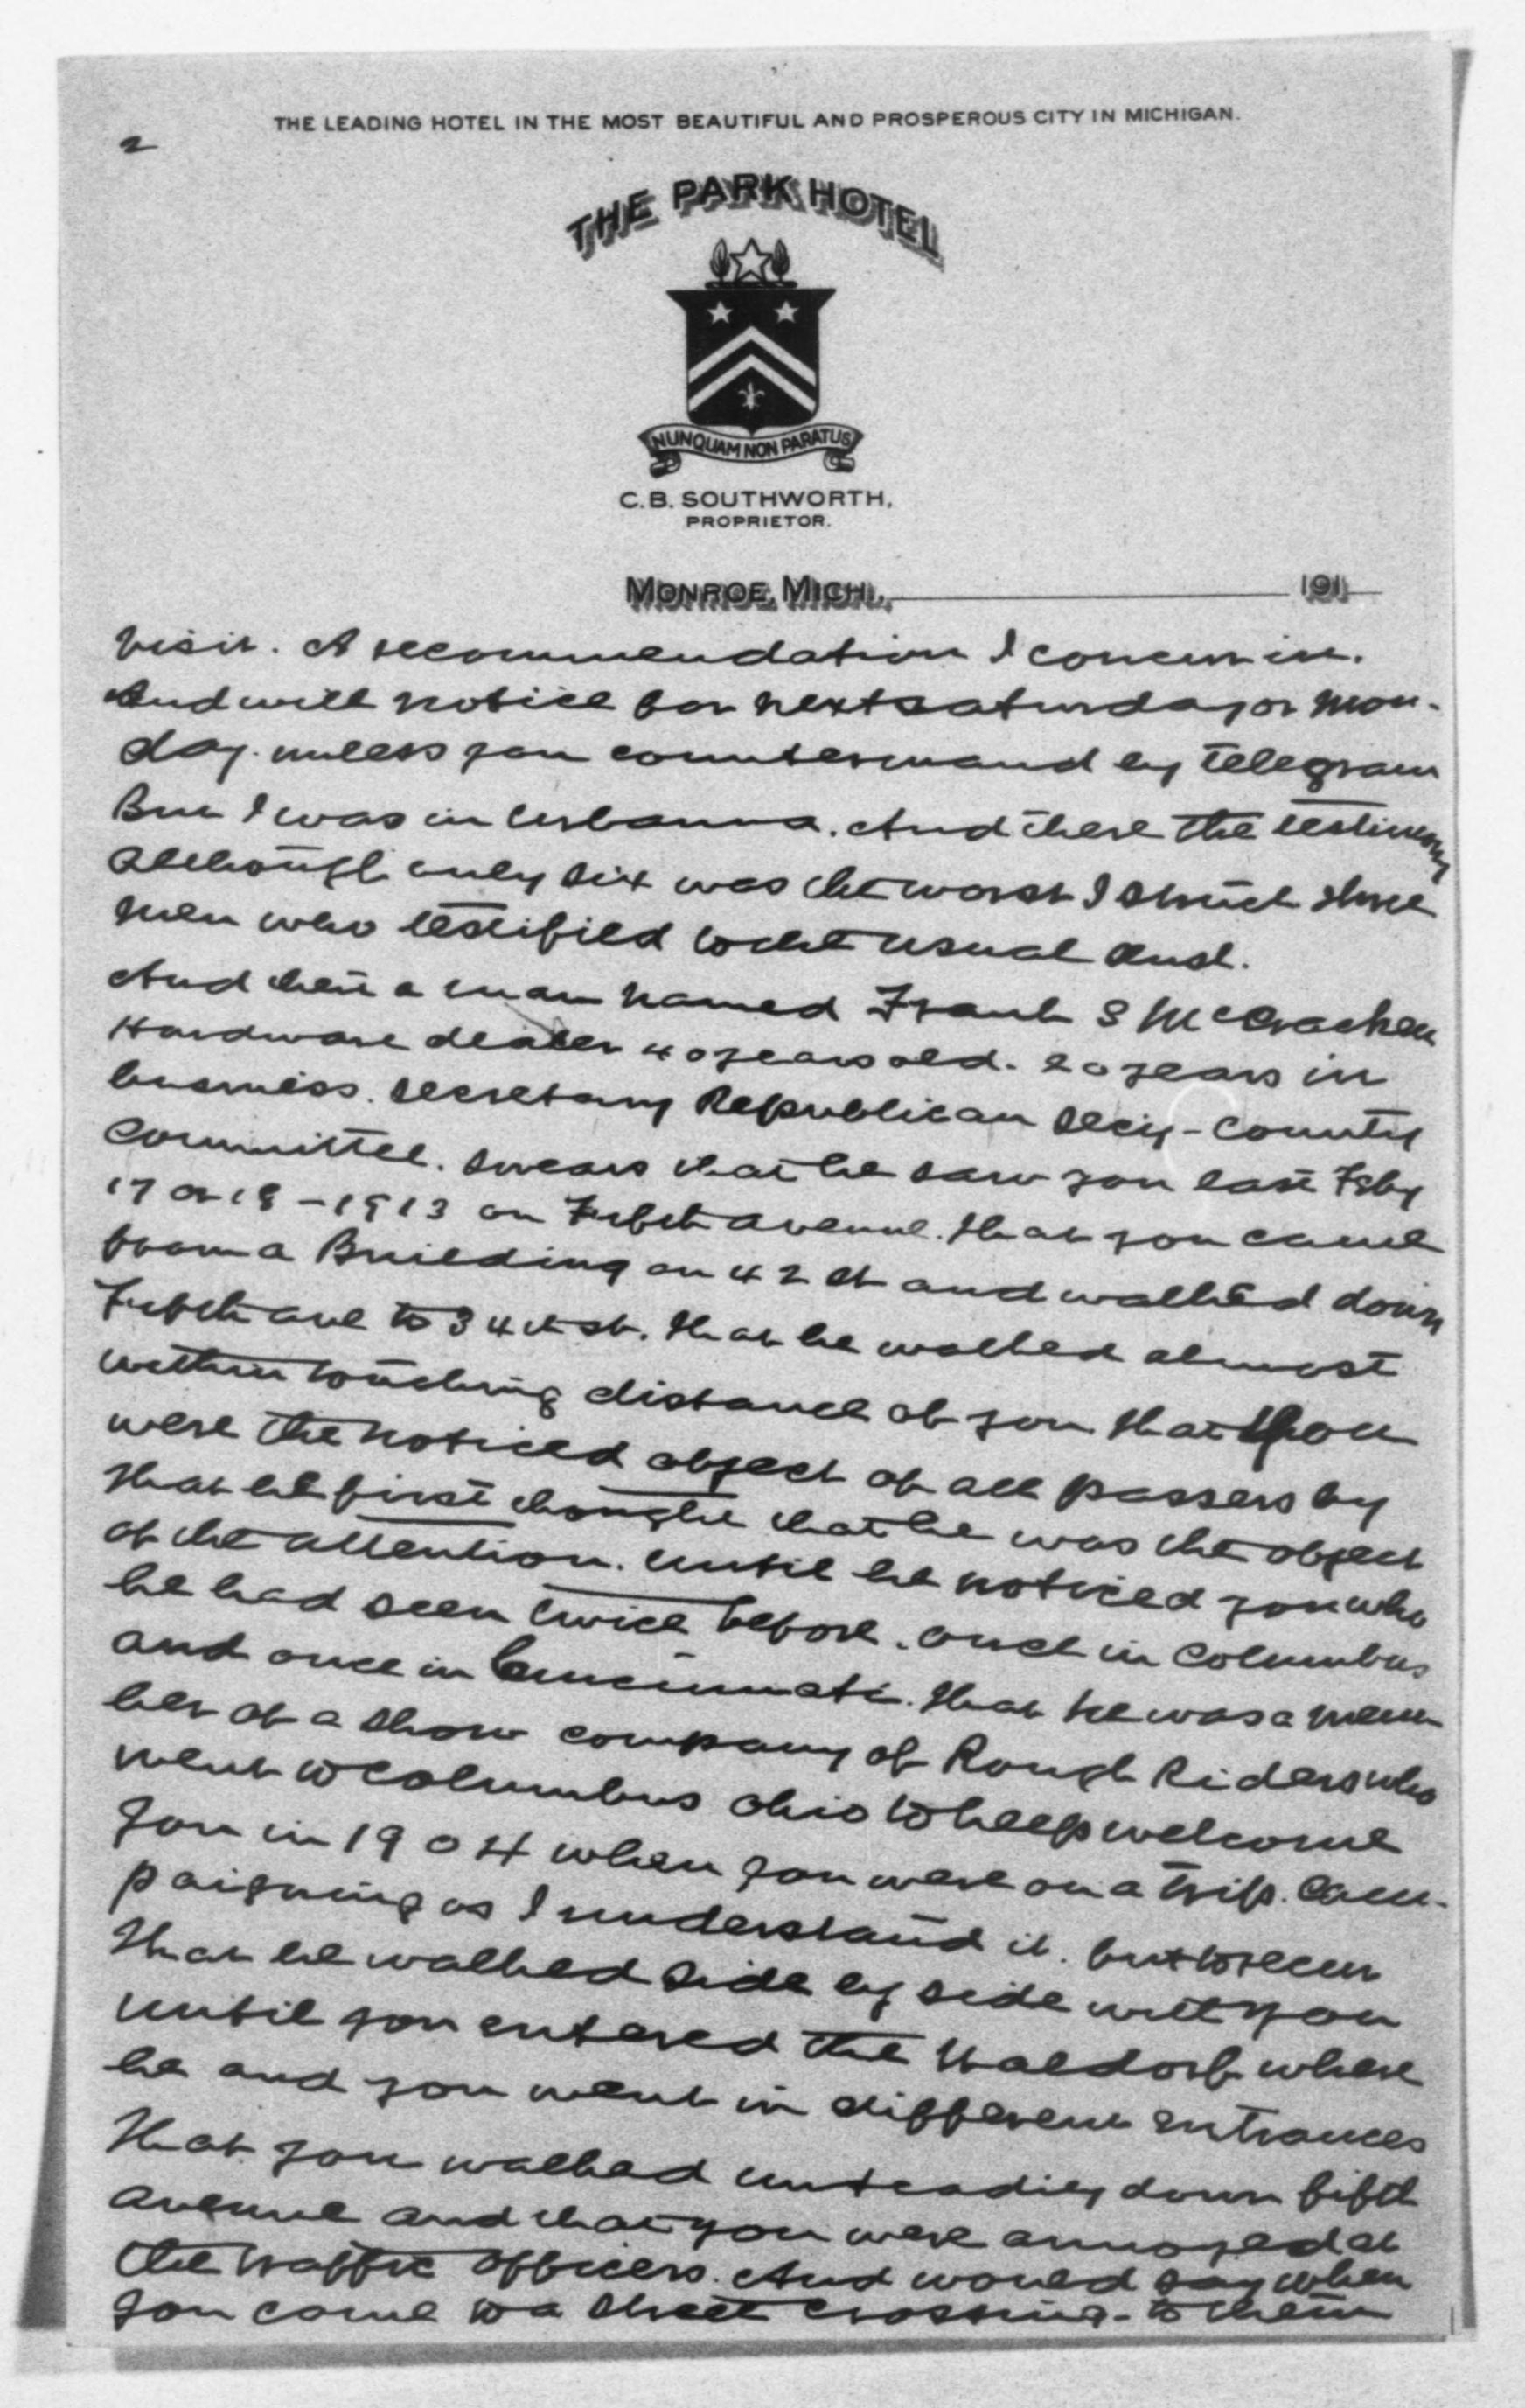 2
THE LEADING HOTEL IN THE MOST BEAUTIFUL AND PROSPEROUS CITY IN MICHIGAN.
THE PARK HOTEL
NUNQUAM NON PARATUS
C. B. SOUTHWORTH,
PROPRIETOR.
MONROE, MICH., 191
visit. A recommendation I concur in.
And will notice for next saturday or Mon-
day. unless you countermand by telegram
But I was in Urbanna. And there the testimony
although only six was the worst I struck three
men who testified to the usual
And then a man named Frank S McCracken
Hardware dealer 40 years old. 20 years in
business. secretary Republican secy - County
Committee. swears that he saw you last Feby
17 or 18 - 1913 on Fifth avenue. that you came
from a Building on 42 st and walked down
Fifth ave to 34th st. that he walked almost
within touching distance of you that you
were the noticed object of all passers by
that he first thought that he was the object
of the attention. until he noticed you who
he had seen twice before. once in Columbus
and once in Cincinnati. that he was a mem
ber of a show company of Rough Riders who
went to Columbus ohio to help welcome
you in 1904 when you were on a trip. Cam-
paigning as I understand it. but
that he walked side by side with you
until you entered the Waldorf where
he and you went in different entrances
that you walked unsteadily down fifth
avenue and that you were annoyed at
the traffic officers. And would say when
you came to a street crossing - to them